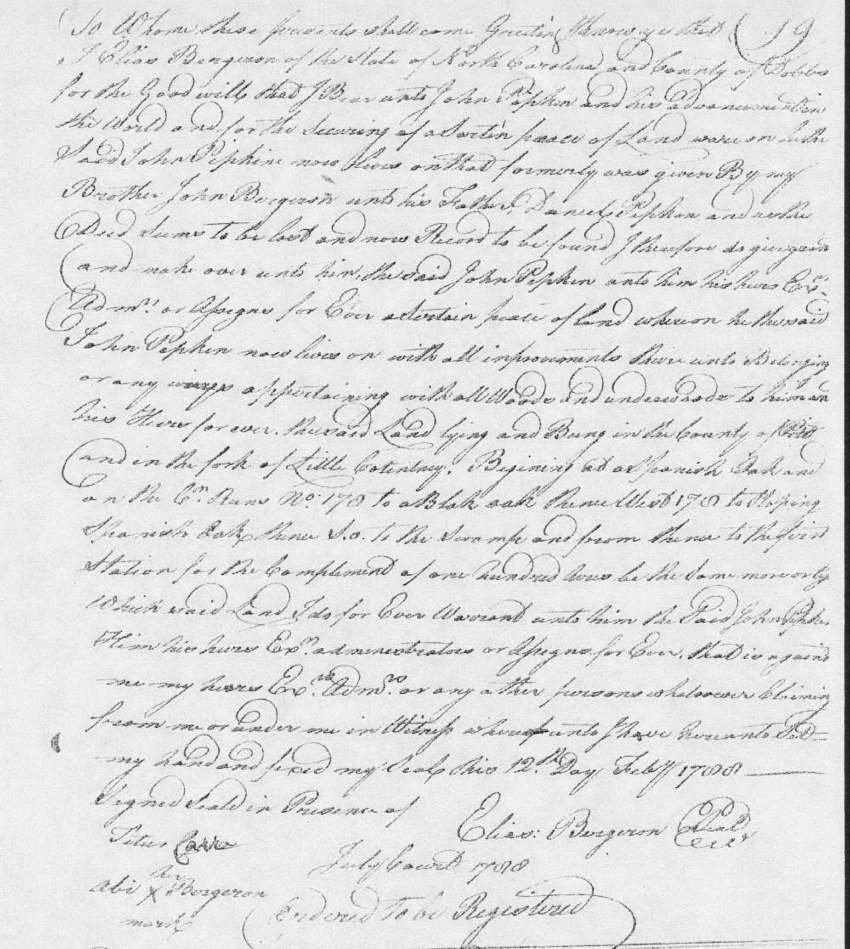 To Whome these presents shall come Greetin Know ye that 19
I Elias Bergeron of the State of North Carolina and County of Dobbs
for the Good will that I Bear unto John Pipkin and his advancement in
the World and for the Securing of a Sertin peace of Land ware on the
Said John Pipkin now lives on that formerly was given By my
Brother John Bergeron unto his Father, Daniel Pipkin and as the
Deed Sums to be lost and now Record to be found I therefore do give
and make over unto him, the said John Pipkin unto him his heirs Exrs
Admrs or Assigns for Ever a Sertain peace of land whereon he the said
John Pipkin now lives on with all improvments there unto Belonging
or any ways appertaining with all Woods and underwoods to him an
his Heirs for ever. the said Land lying and Being in the County of Pitt
and in the fork of Little Cotentney. Begining at a Spanish Oak and
on the Runs No. 178 to a Blak oak thence West 178 to
Spanish Oak thence So. to the Swamp and from thence to the first
Station for the Complement of one hundred Acres be the Same more or less
Which said Land I do for Ever Warrant unto him the Said John Pipkin
Him his heirs Exrs administrators or Assigns for Ever. that is against
me my heirs Exrs Admrs or any other persons whatsoever Claiming
from me or under me in Witness whereof unto I have hereunto Set
my hand and fixed my Seal this 12th Day Feby 1788
Signed Seald in Presence of
Elias: Bergeron Seal
Titus Carr
July Court 1788
her
abi X Bergeron
mark
Ordered to be Registered